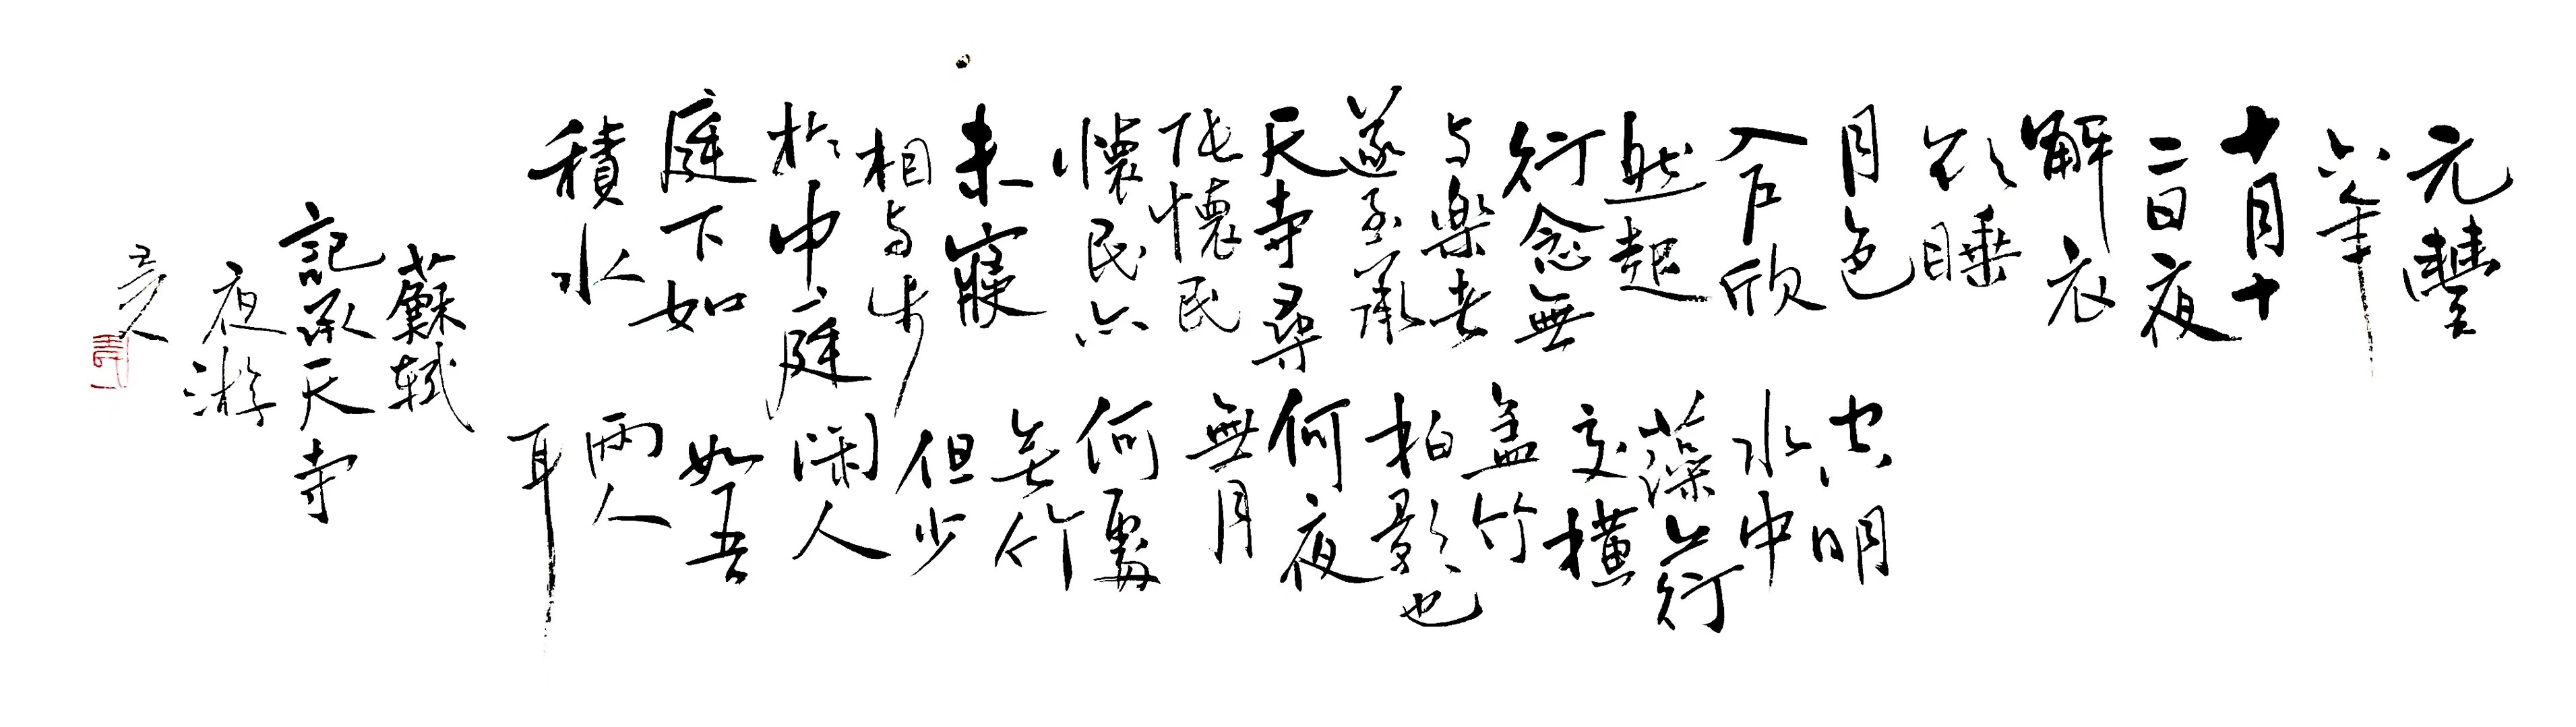 元豐
六年
十月十
二日夜
解衣
欲睡
月色
入户欣
然起
行念無
与楽者
遂至承
天寺尋
张懷民
懷民亦
未寢
相与步
於中庭
庭下如
積水
空明
水中
藻荇
交横
盖竹
柏影也
何夜
無月
何處
無竹
但少
閑人
如吾
兩人
耳
蘇軾
記承天寺
夜游